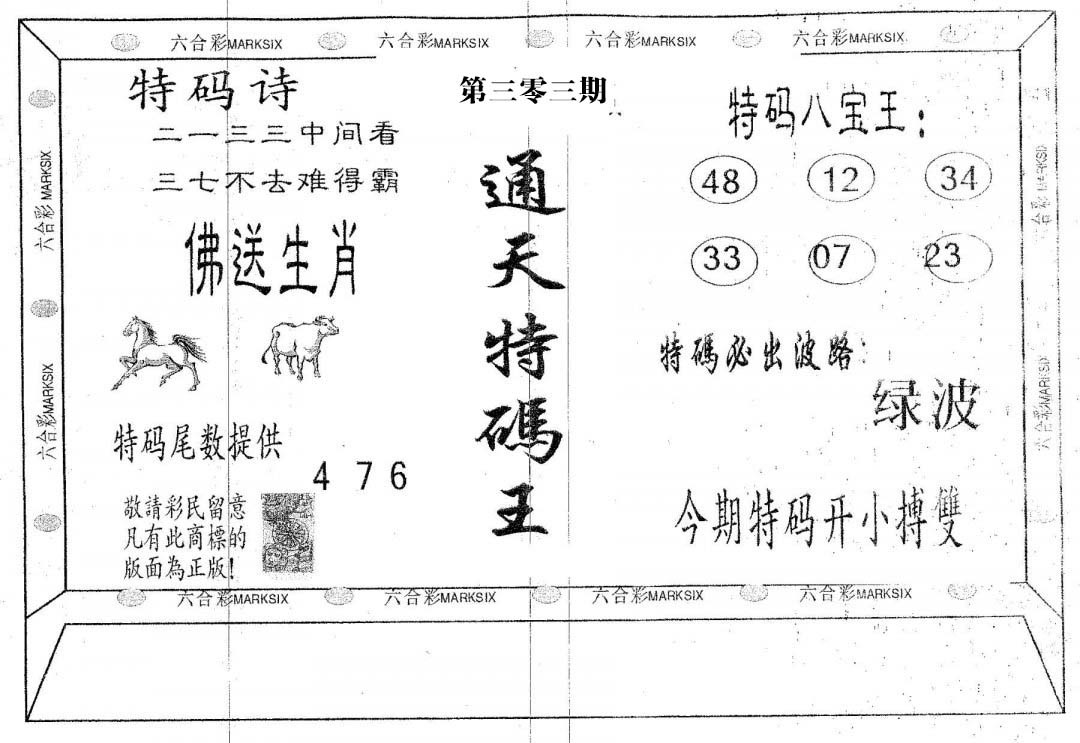 六合彩MARKSIX 六合彩MARKSIX 六合彩MARKSIX 六合彩MARKSIX
特码诗
二一三三中间看
三七不去难得霸
佛送生肖
特码尾数提供
4 7 6
敬請彩民留意
凡有此商標的
版面為正版!
第三零三期
通天特碼王
特码八宝王:
48 12 34
33 07 23
特碼必出波路:
绿波
今期特码开小搏雙
六合彩MARKSIX
六合彩MARKSIX
六合彩MARKSIX
六合彩MARKSIX
六合彩MARKSIX 六合彩MARKSIX 六合彩MARKSIX 六合彩MARKSIX